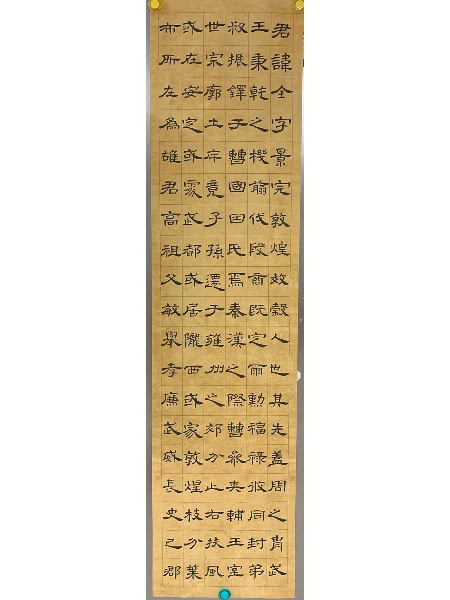 君諱全字景完敦煌效穀人也其先蓋周之胄武
王秉乾之機翦伐殷商既定爾勳福祿攸同封弟
叔振鐸于曹國因氏焉秦漢之際曹參夾輔王室
世宗廓土斥竟子孫遷于雍州之郊分止右扶風
或在安定或處武都或居隴西或家敦煌枝分葉
布所在為雄君高祖父敏舉孝廉武威長史巴郡